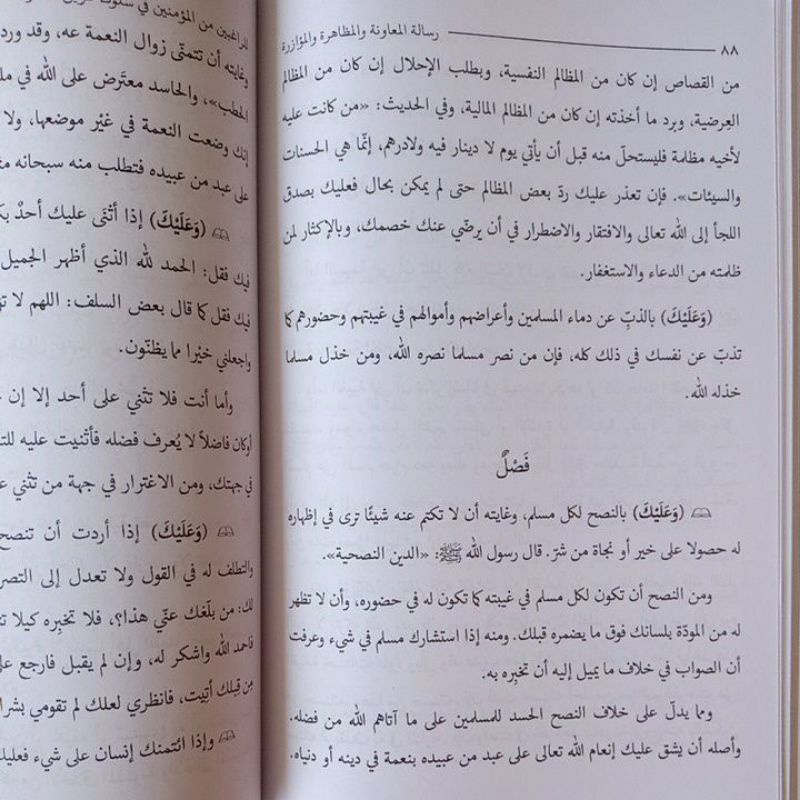 ٨٨ رسالة المعاونة والمظاهرة والمؤازرة
من القصاص إن كان من المظالم النفسية، وبطلب الإحلال إن كان من المظالم
العِرضية، وبرد ما أخذته إن كان من المظالم المالية، وفي الحديث: «من كانت عليه
لأخيه مظلمة فليستحلّ منه قبل أن يأتي يوم لا دينار فيه ولادرهم، إنّما هي الحسنات
والسيئات». فإن تعذر عليك ردّ بعض المظالم حتى لم يمكن بحال فعليك بصدق
اللجأ إلى الله تعالى والافتقار والاضطرار في أن يرضّي عنك خصمك، وبالإكثار لمن
ظلمته من الدعاء والاستغفار.
(وَعَلَيْكَ) بالذبّ عن دماء المسلمين وأعراضهم وأموالهم في غيبتهم وحضورهم كما
تذبّ عن نفسك في ذلك كله، فإن من نصر مسلما نصره الله، ومن خذل مسلما
خذله الله.
فَصْلٌ
(وَعَلَيْكَ) بالنصح لكل مسلم، وغايته أن لا تكتم عنه شيئًا ترى في إظهاره
له حصولا على خير أو نجاة من شرّ. قال رسول الله ﷺ: «الدين النصحية».
ومن النصح أن تكون لكل مسلم في غيبته كما تكون له في حضوره، وأن لا تظهر
له من المودّة بلسانك فوق ما يضمره قبلك. ومنه إذا استشارك مسلم في شيء وعرفت
أن الصواب في خلاف ما يميل إليه أن تخبره به.
ومما يدلّ على خلاف النصح الحسد للمسلمين على ما آتاهم الله من فضله.
وأصله أن يشق عليك إنعام الله تعالى على عبد من عبيده بنعمة في دينه أو دنياه.
للراغبين من المؤمنين في سلوك
وغايته أن تتمنّى زوال النعمة عه، وقد ورد
الحطب»، والحاسد معتَرض على الله في
إنك وضعت النعمة في غيْر موضعها، ولا
على عبد من عبيده فتطلب منه سبحانه
(وَعَلَيْكَ) إذا أثنى عليك أحدٌ
فيك فقل: الحمد لله الذي أظهر الجميل
فيك فقل كما قال بعض السلف: اللهم لا
واجعلني خيْرا مما يظنّون.
وأما أنت فلا تثني على أحد إلا إن
أوكان فاضلاً لا يُعرف فضله فأثنيت عليه
في جهتك، ومن الاغترار في جهة من تثني
(وَعَلَيْكَ) إذا أردت أن تنصح
والتطلف له في القول ولا تعدل إلى
لك: من بلّغك عنّي هذا؟، فلا تخبِره كيلا
فاحمد الله واشكر له، وإن لم يقبل فارجع
مِن قِبلك أتيت، فانظري لعلك لم تقومي
وإذا ائتمنك إنسان على شيء فعليك